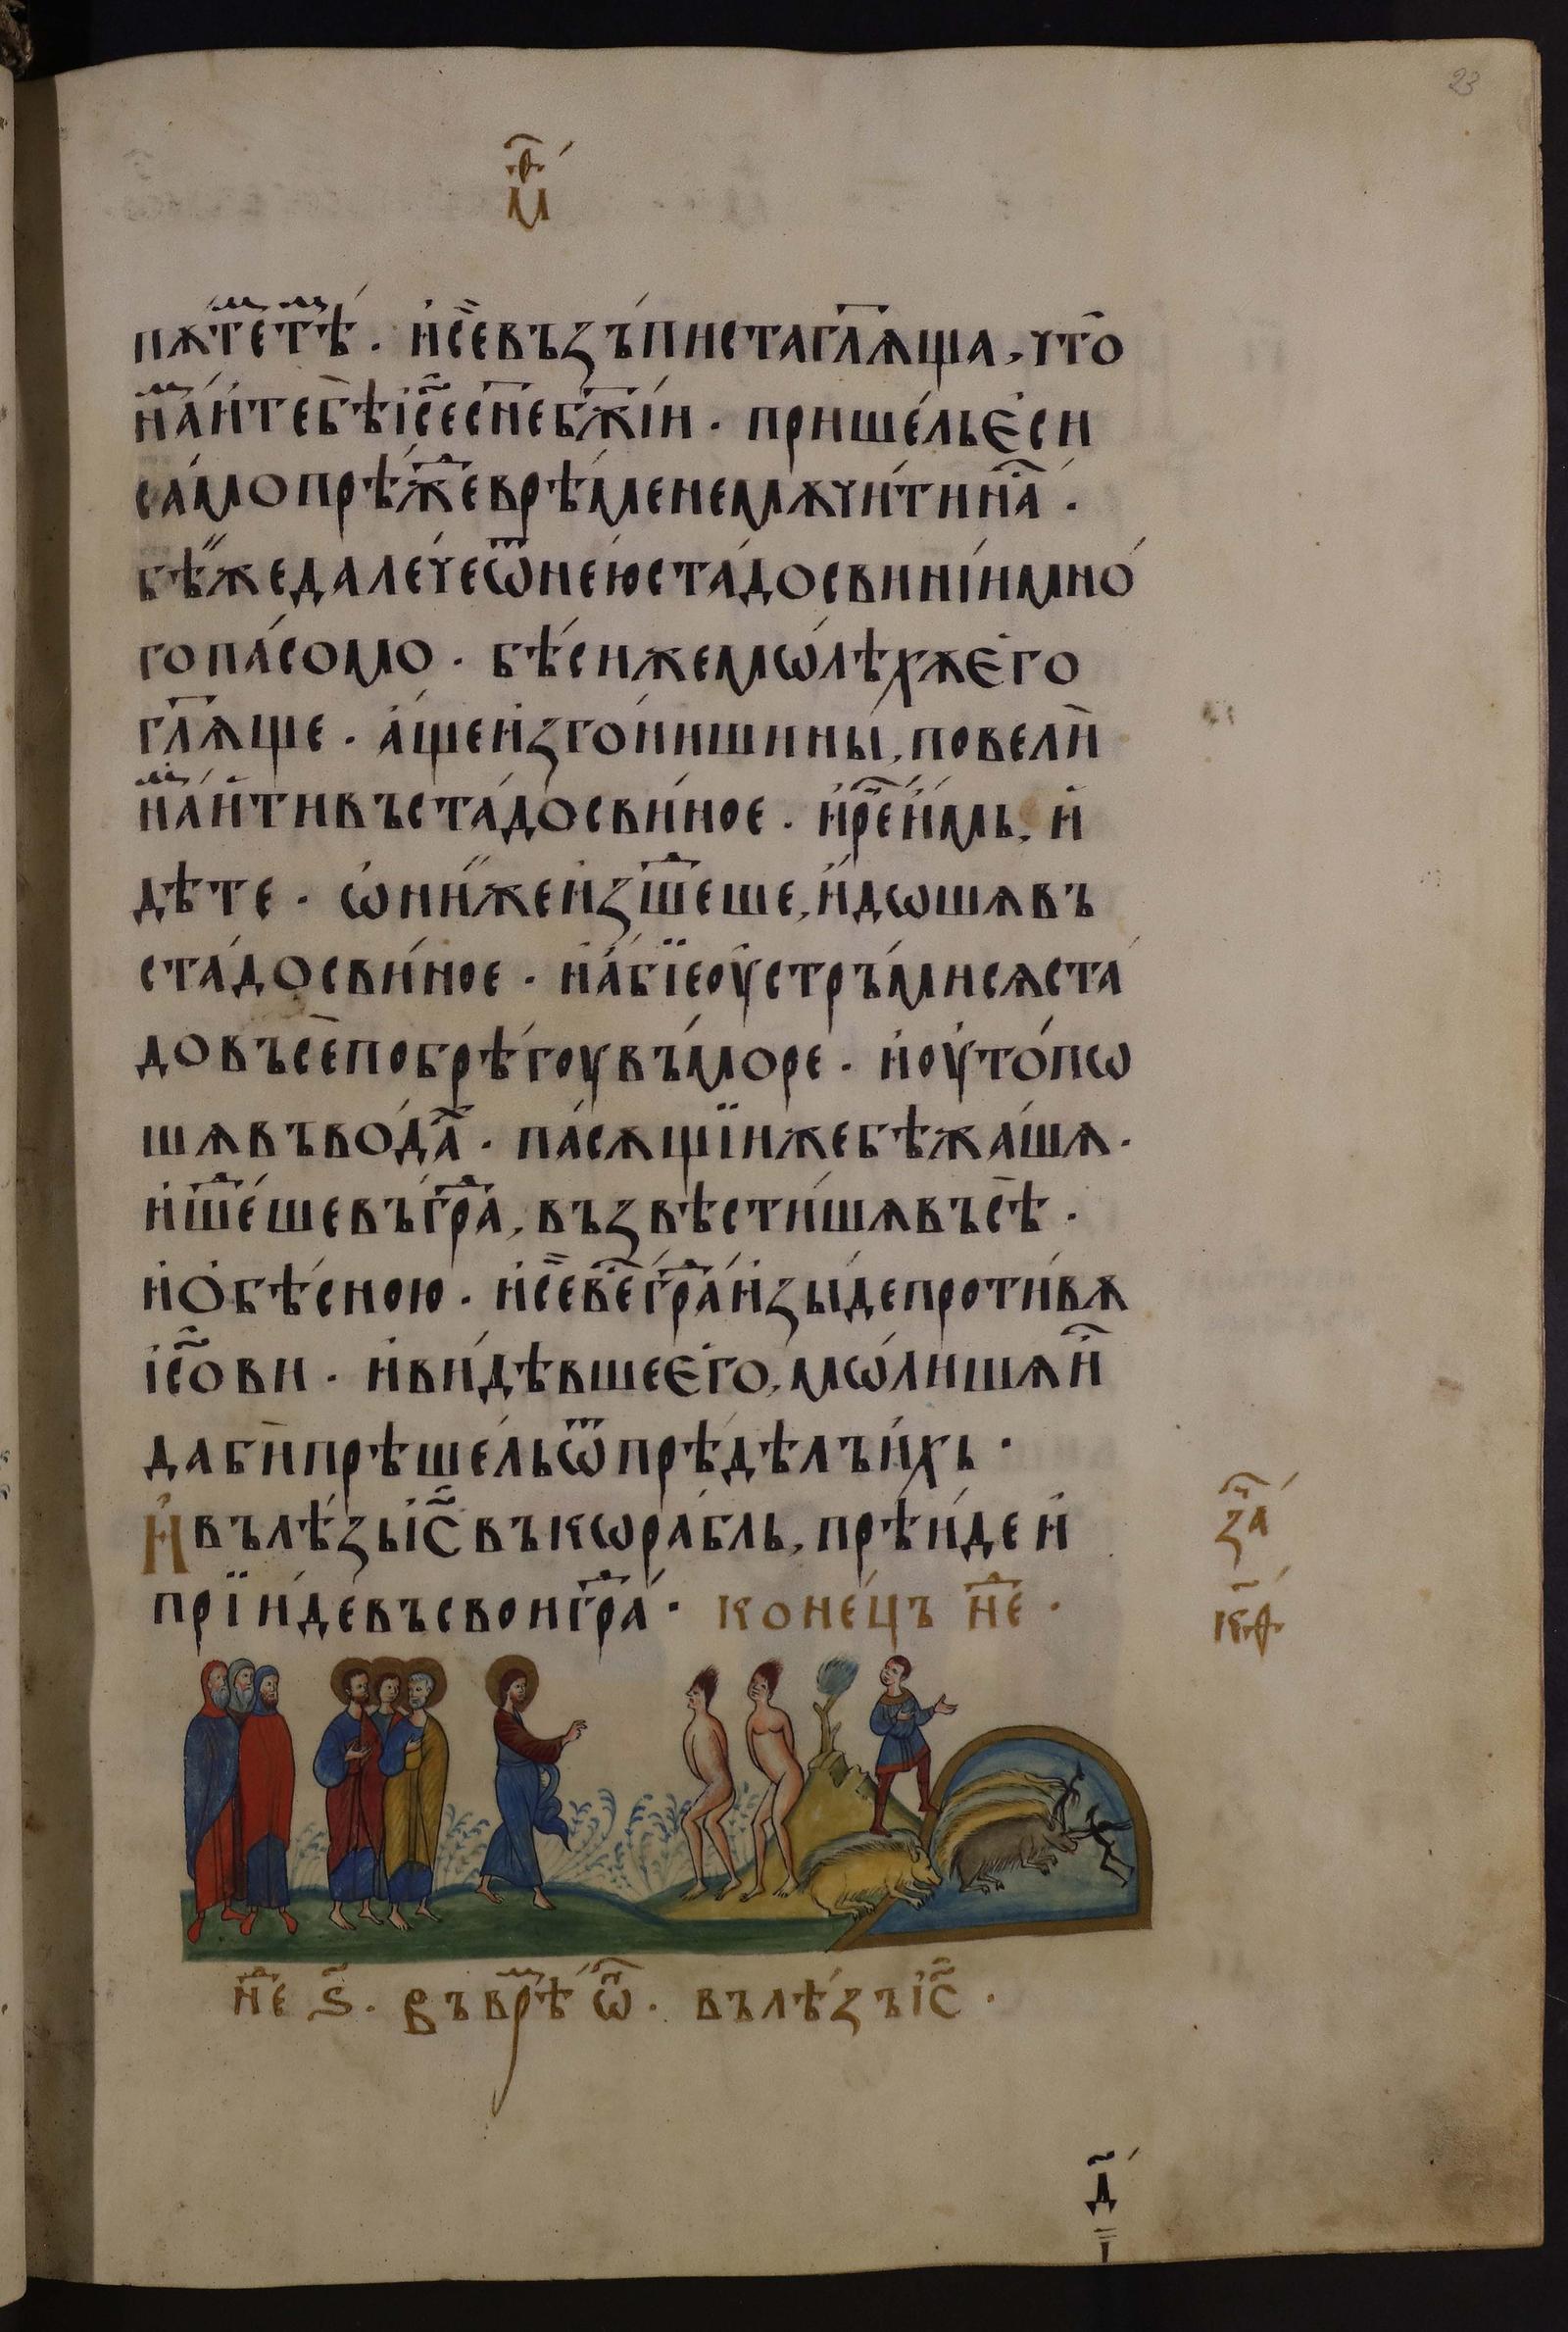 23
м҃ѳ
пѫтемтѣмь . и҆се́възъпистаглѧща, что҇
на́мите́бѣі҆с҃есн҃ебж҃їи . прише́льє҆си
са́мопрѣ́жⷣеврѣ́менемѫчи́тина́съ .
бѣ́жедале́чеѿнею̀ста́досвині́имно́
гопа́сомо . бѣ́сижемѡ́лѣхѫє҆го
гл҃ѧще . а҆́щеи҆зго́нишины̀, повелѝ
на́мⷨи҆тивъста́досви́ное . и҆рече́и҆́мь, и҆
дѣте . ѡ҆ни́жеи҆зшеⷣше, и҆́дѡшѧвъ
ста́досви́ное . и҆а҆́бїеоу҆стръ́мисѧста́
довъсѐпобрѣ́гоувъ́море . и҆оу҆то́пѡ
шѧвъвода́хⷯ . па́сѧщїижебѣжа́шѧ .
и҆шеⷣ́шевъ́граⷣ, възвѣсти́шѧвъсѣ̀ .
и҆ѻ҆бѣ́сною . и҆се́ве́сьграⷣ́и҆зы́депроти́вѫ
і҆с҃ови . и҆ви́дѣвшеє҆го, мѡ́лишѧи҆
дабѝпрѣше́льѿпрѣ́дѣлъи́хь .
И҆вълѣ́зьі҆с҃въкѡра́бль, прѣи́деи҆
прїи́девъсвоиграⷣ́ . коне́цъ неⷣ .
за́чⷱ
к҃ѳ
неⷣ ѕ҃ . въврѣ́мⷨ ѡ́нⷪ . вълѣ́зъі҆с҃ .
д҃
і҃